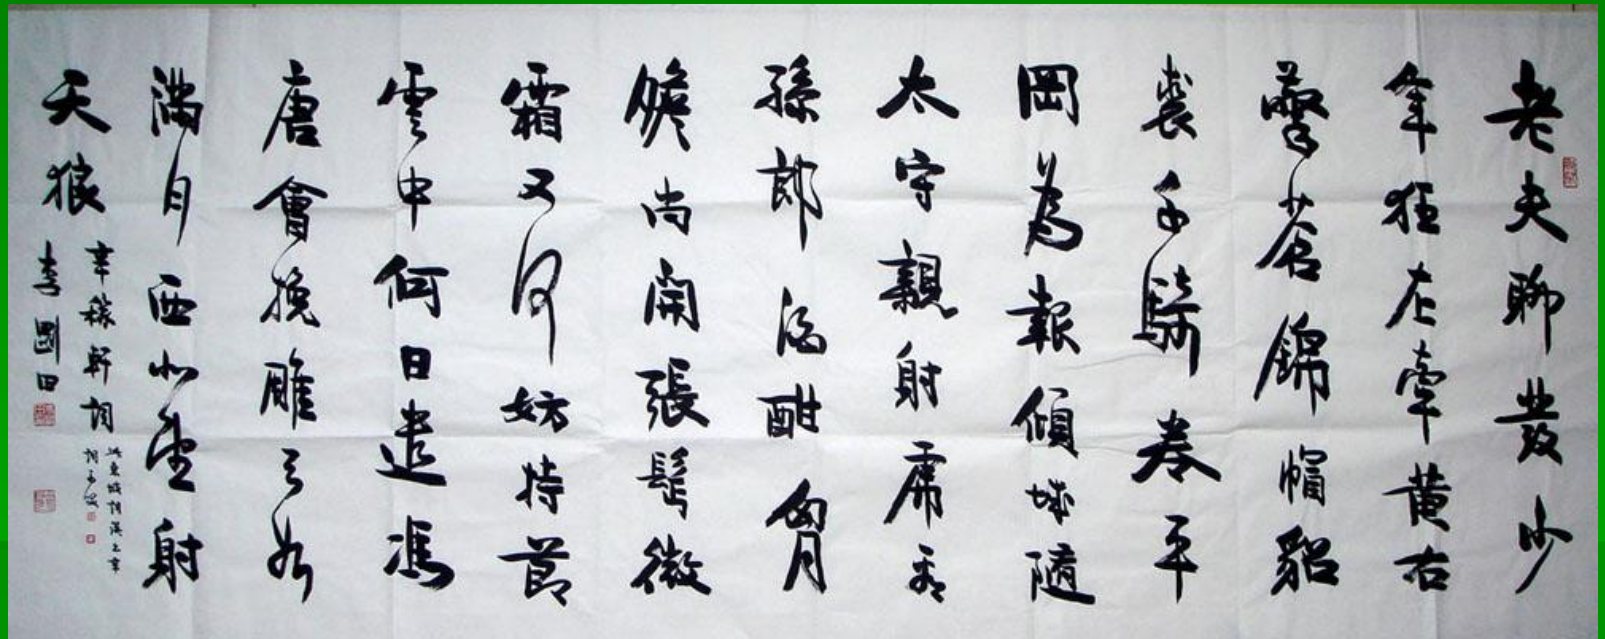 老夫聊發少
年狂左牽黄右
擎蒼錦帽貂
裘千騎卷平
岡為報傾城隨
太守親射虎看
孫郎酒酣胸
膽尚開張鬢微
霜又何妨持節
雲中何日遣馮
唐會挽雕弓如
滿月西北望射
天狼
辛稼軒詞
東坡詞
李國田